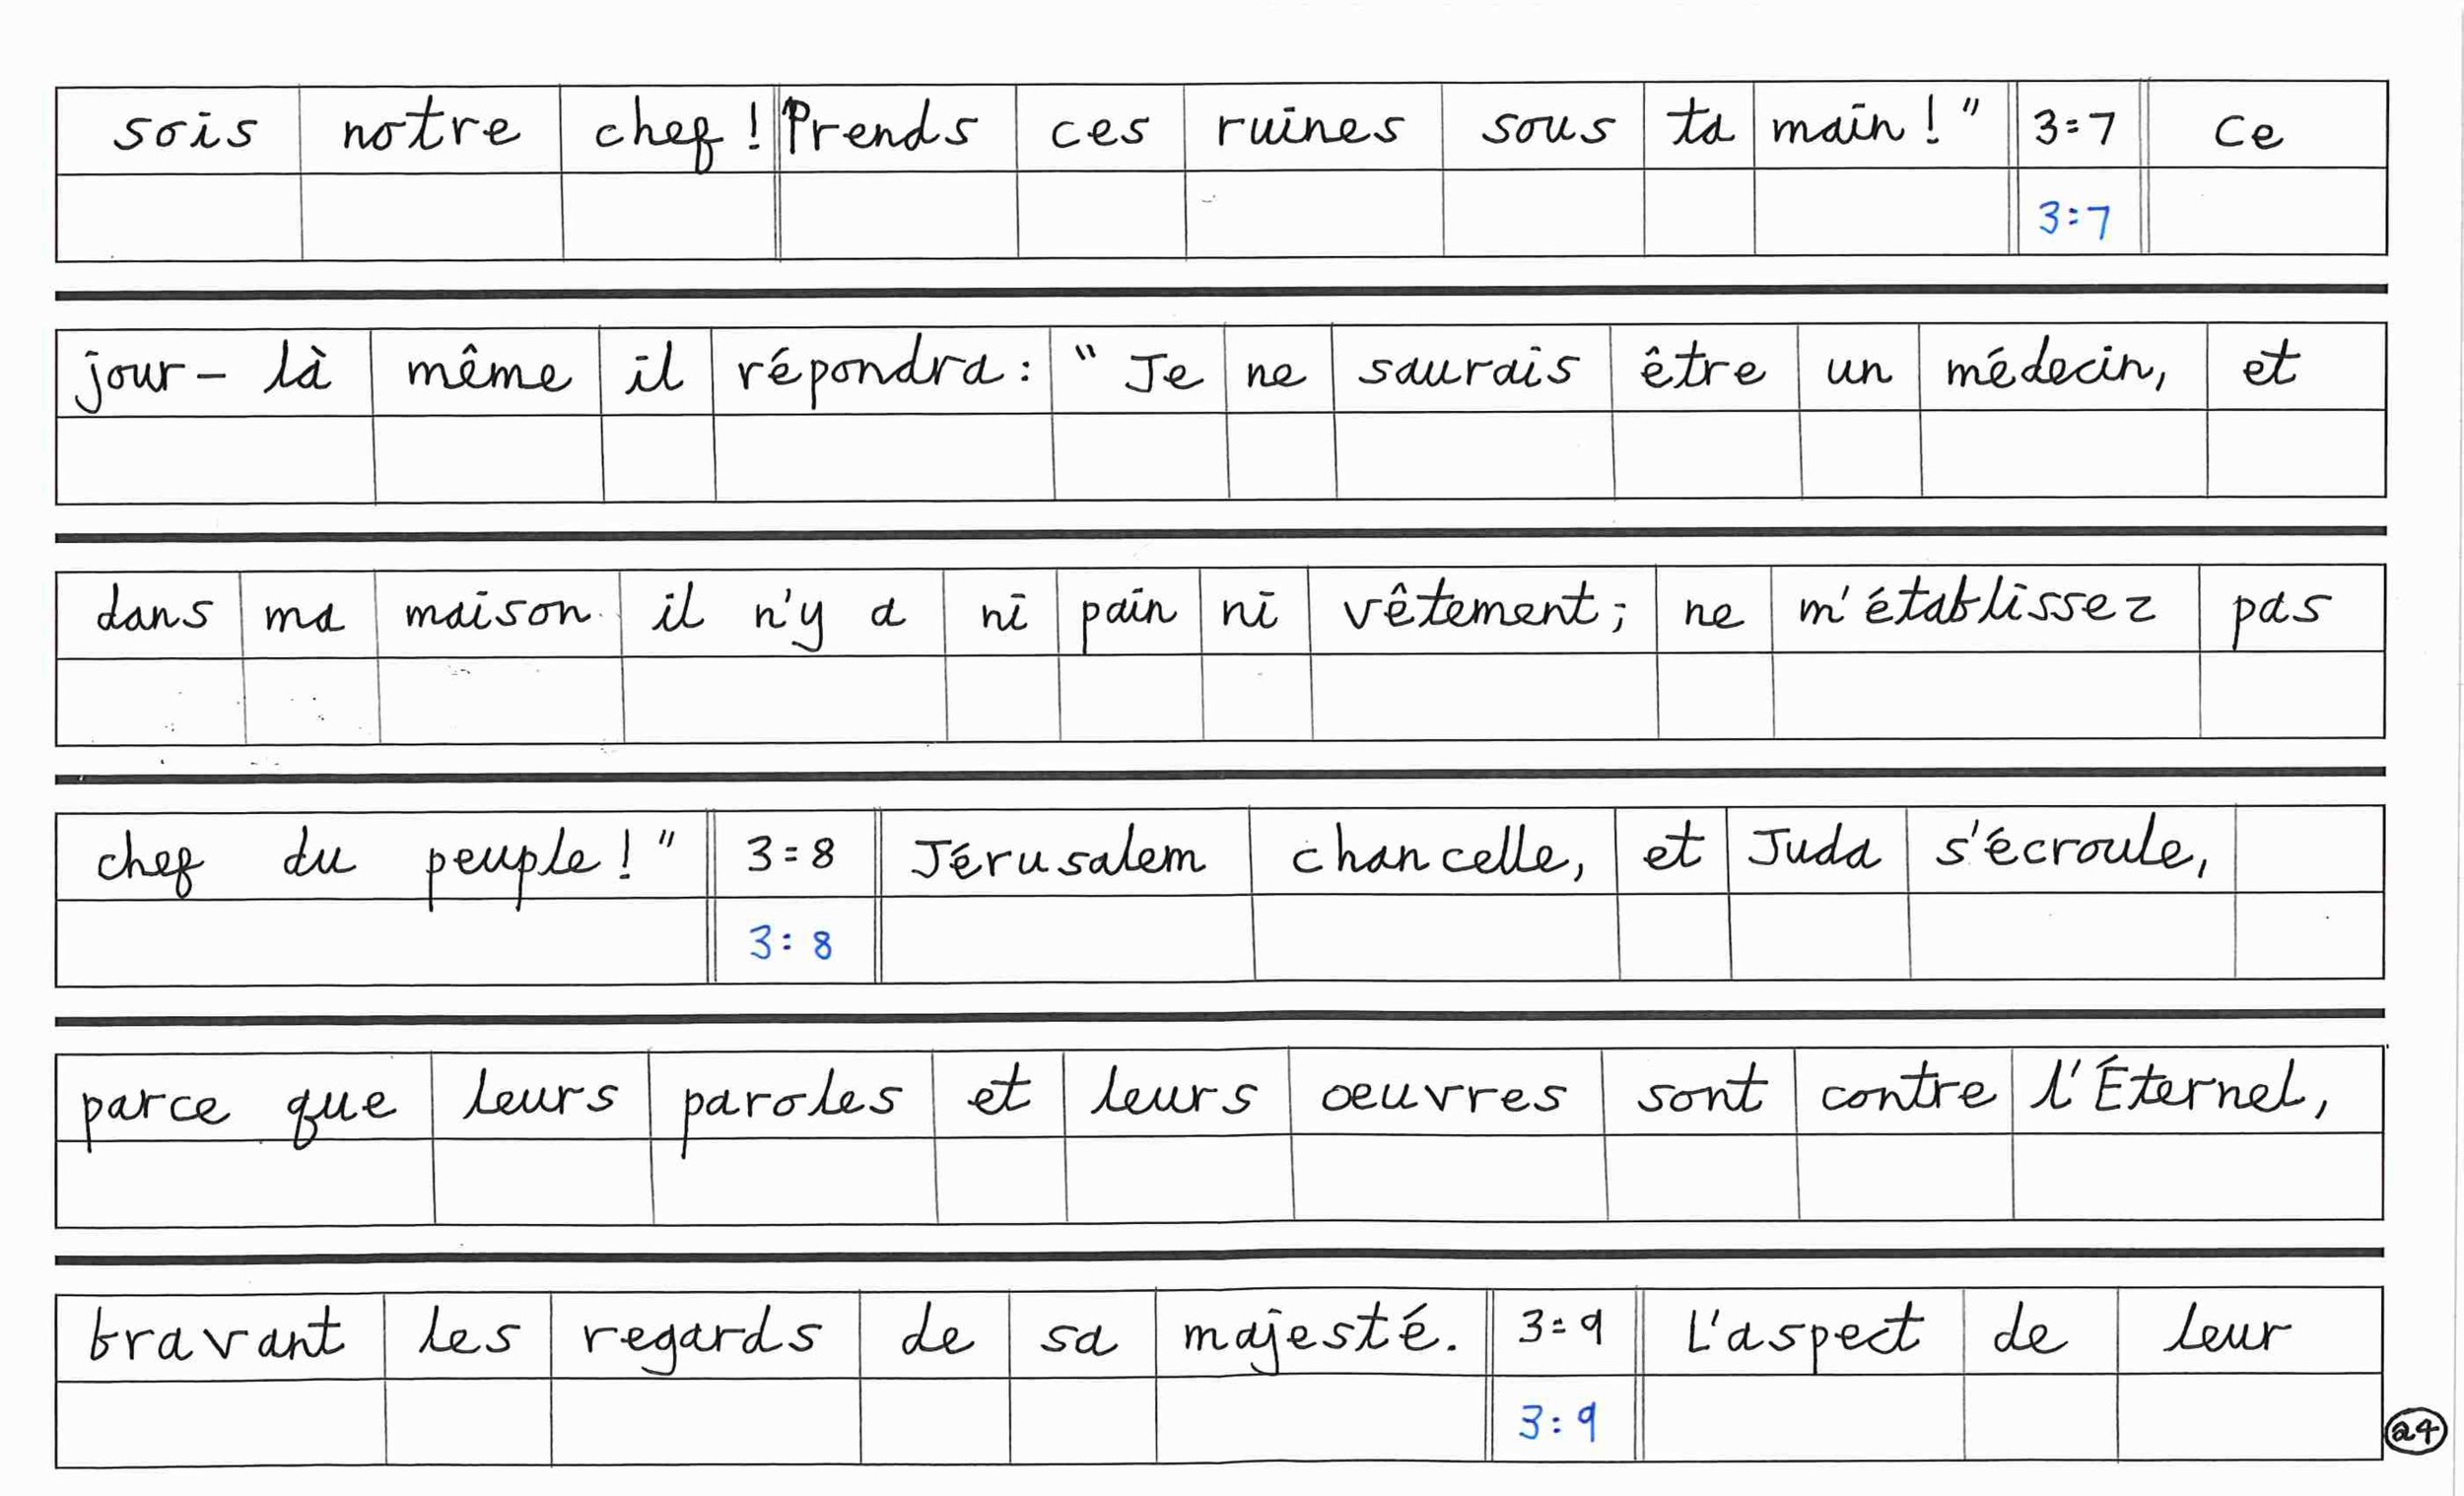 sois notre chef ! Prends ces ruines sous ta main ! " 3:7 ce
3:7
jour - là même il répondra : " Je ne saurais être un médecin, et
dans ma maison il n'y a ni pain ni vêtement ; ne m'établissez pas
chef du peuple ! " 3:8 Jérusalem chancelle, et Juda s'écroule,
3:8
parce que leurs paroles et leurs oeuvres sont contre l'Éternel,
bravant les regards de sa majesté. 3:9 L'aspect de leur
3:9
24